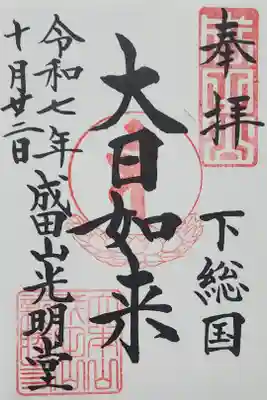 奉拝
下総国
大日如来
令和七年
十月廿二日
成田山光明堂